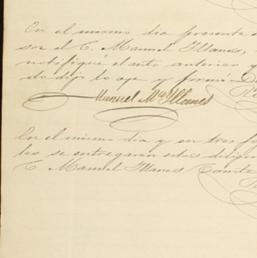 En el mismo dia presente
sor el C. Manuel Illanes,
notifiqué el auto anterior y
do dijo lo oye y firmó. D
Manuel Ma Illanes
En el mismo dia y en tres fo
les se entregaron estas dilige
C. Manuel Illanes